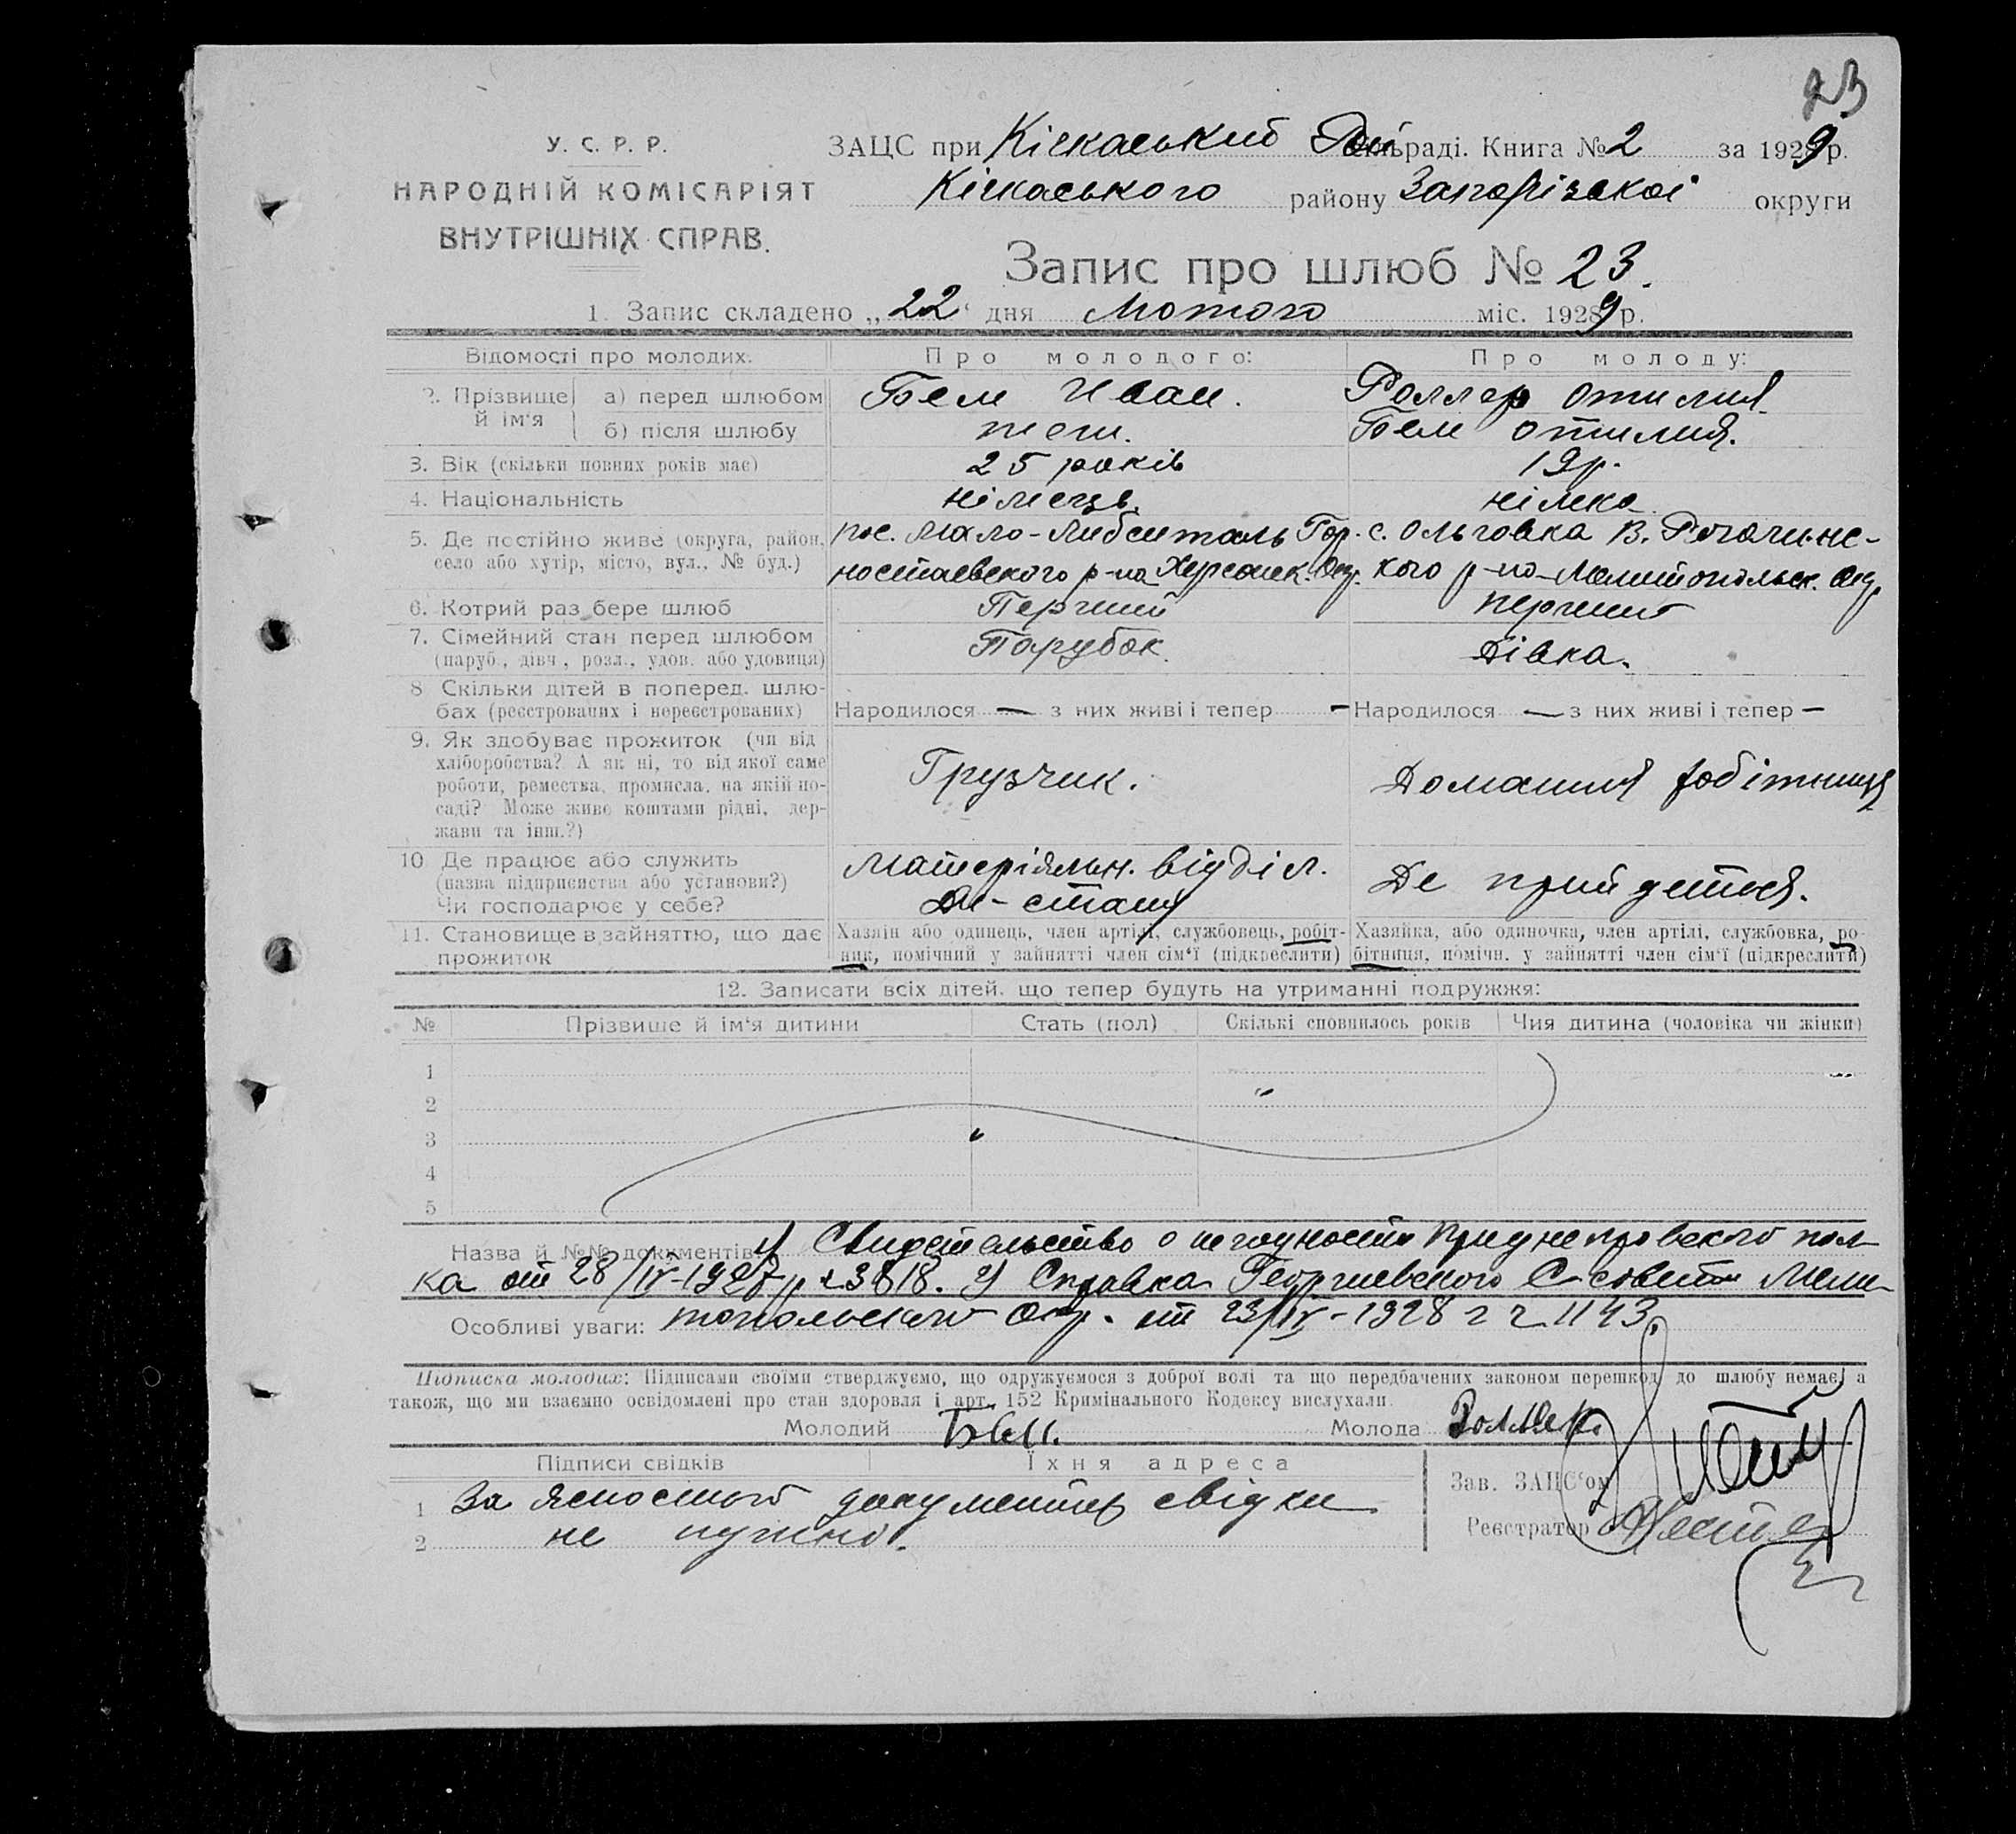 23
У. С. Р. Р.
НАРОДНІЙ КОМІСАРІЯТ
ВНУТРІШНІХ СПРАВ.
ЗАЦС при Кічкаський раді. Книга № 2 за 1929 р.
Кічкаського району Запорізької округи
Запис про шлюб № 23.
1. Запис складено „22“ дня Лютого міс. 1929 р.
Відомості про молодих: Про молодого: Про молоду:
2. Прізвище й ім‘я а) перед шлюбом Бем Иван. Роллер Отилия
б) після шлюбу теж. Бем Отилия.
3. Вік (скільки повних років має) 25 років 19 р.
4. Національність німець. німка
5. Де постійно живе (округа, район, пос. Мало-Либенталь Гор- с. Ольговка В. Рогачинс-
село або хутір, місто, вул., № буд.) ностаевского р-на Херсонск. Окр. кого р-на Мелитопольск. Окр.
6. Котрий раз бере шлюб Перший перший
7. Сімейний стан перед шлюбом Парубок. Дівка.
(паруб., дівч., розл., удов. або удовиця)
8 Скільки дітей в поперед. шлю-
бах (реєстрованих і нереєстрованих) Народилося — з них живі і тепер — Народилося — з них живі і тепер —
9. Як здобуває прожиток (чи від
хліборобства? А як ні, то від якої саме
роботи, ремества, промисла, на якій по- Грузчик. Домашня робітниця
саді? Може живе коштами рідні, дер-
жави та інш.?)
10. Де працює або служить Матеріяльн. відділ.
(назва підприємства або установи?) Де прийдеться.
Чи господарює у себе?
11. Становище в зайняттю, що дає Хазяїн або одинець, член артілі, службовець, робіт- Хазяйка, або одиночка, член артілі, службовка, ро-
прожиток ник, помічний у зайнятті член сім‘ї (підкреслити) бітниця, помічн. у зайнятті член сім‘ї (підкреслити)
12. Записати всіх дітей, що тепер будуть на утриманні подружжя:
№ Прізвище й ім‘я дитини Стать (пол) Скількі сповнилось років Чия дитина (чоловіка чи жінки)
1
2
3
4
5
Назва й №№ документів: 1) Свидетельство о негодности Приднепровского пол-
ка от 28/IV-1927 р. 3818. 2) Справка Георгиевского С-совета Мели-
Особливі уваги: топольского Окр. от 23/IV-1928 г 1143.
Підписка молодих: Підписами своїми стверджуємо, що одружуємося з доброї волі та що передбачених законом перешкод до шлюбу немає, а
також, що ми взаємно освідомлені про стан здоровля і арт. 152 Кримінального Кодексу вислухали.
Молодий Бем. Молода Роллер.
Підписи свідків Їхня адреса
Зав. ЗАЦС‘ом
1 За ясностью документів свідки
Реєстратор
2 не нужно.